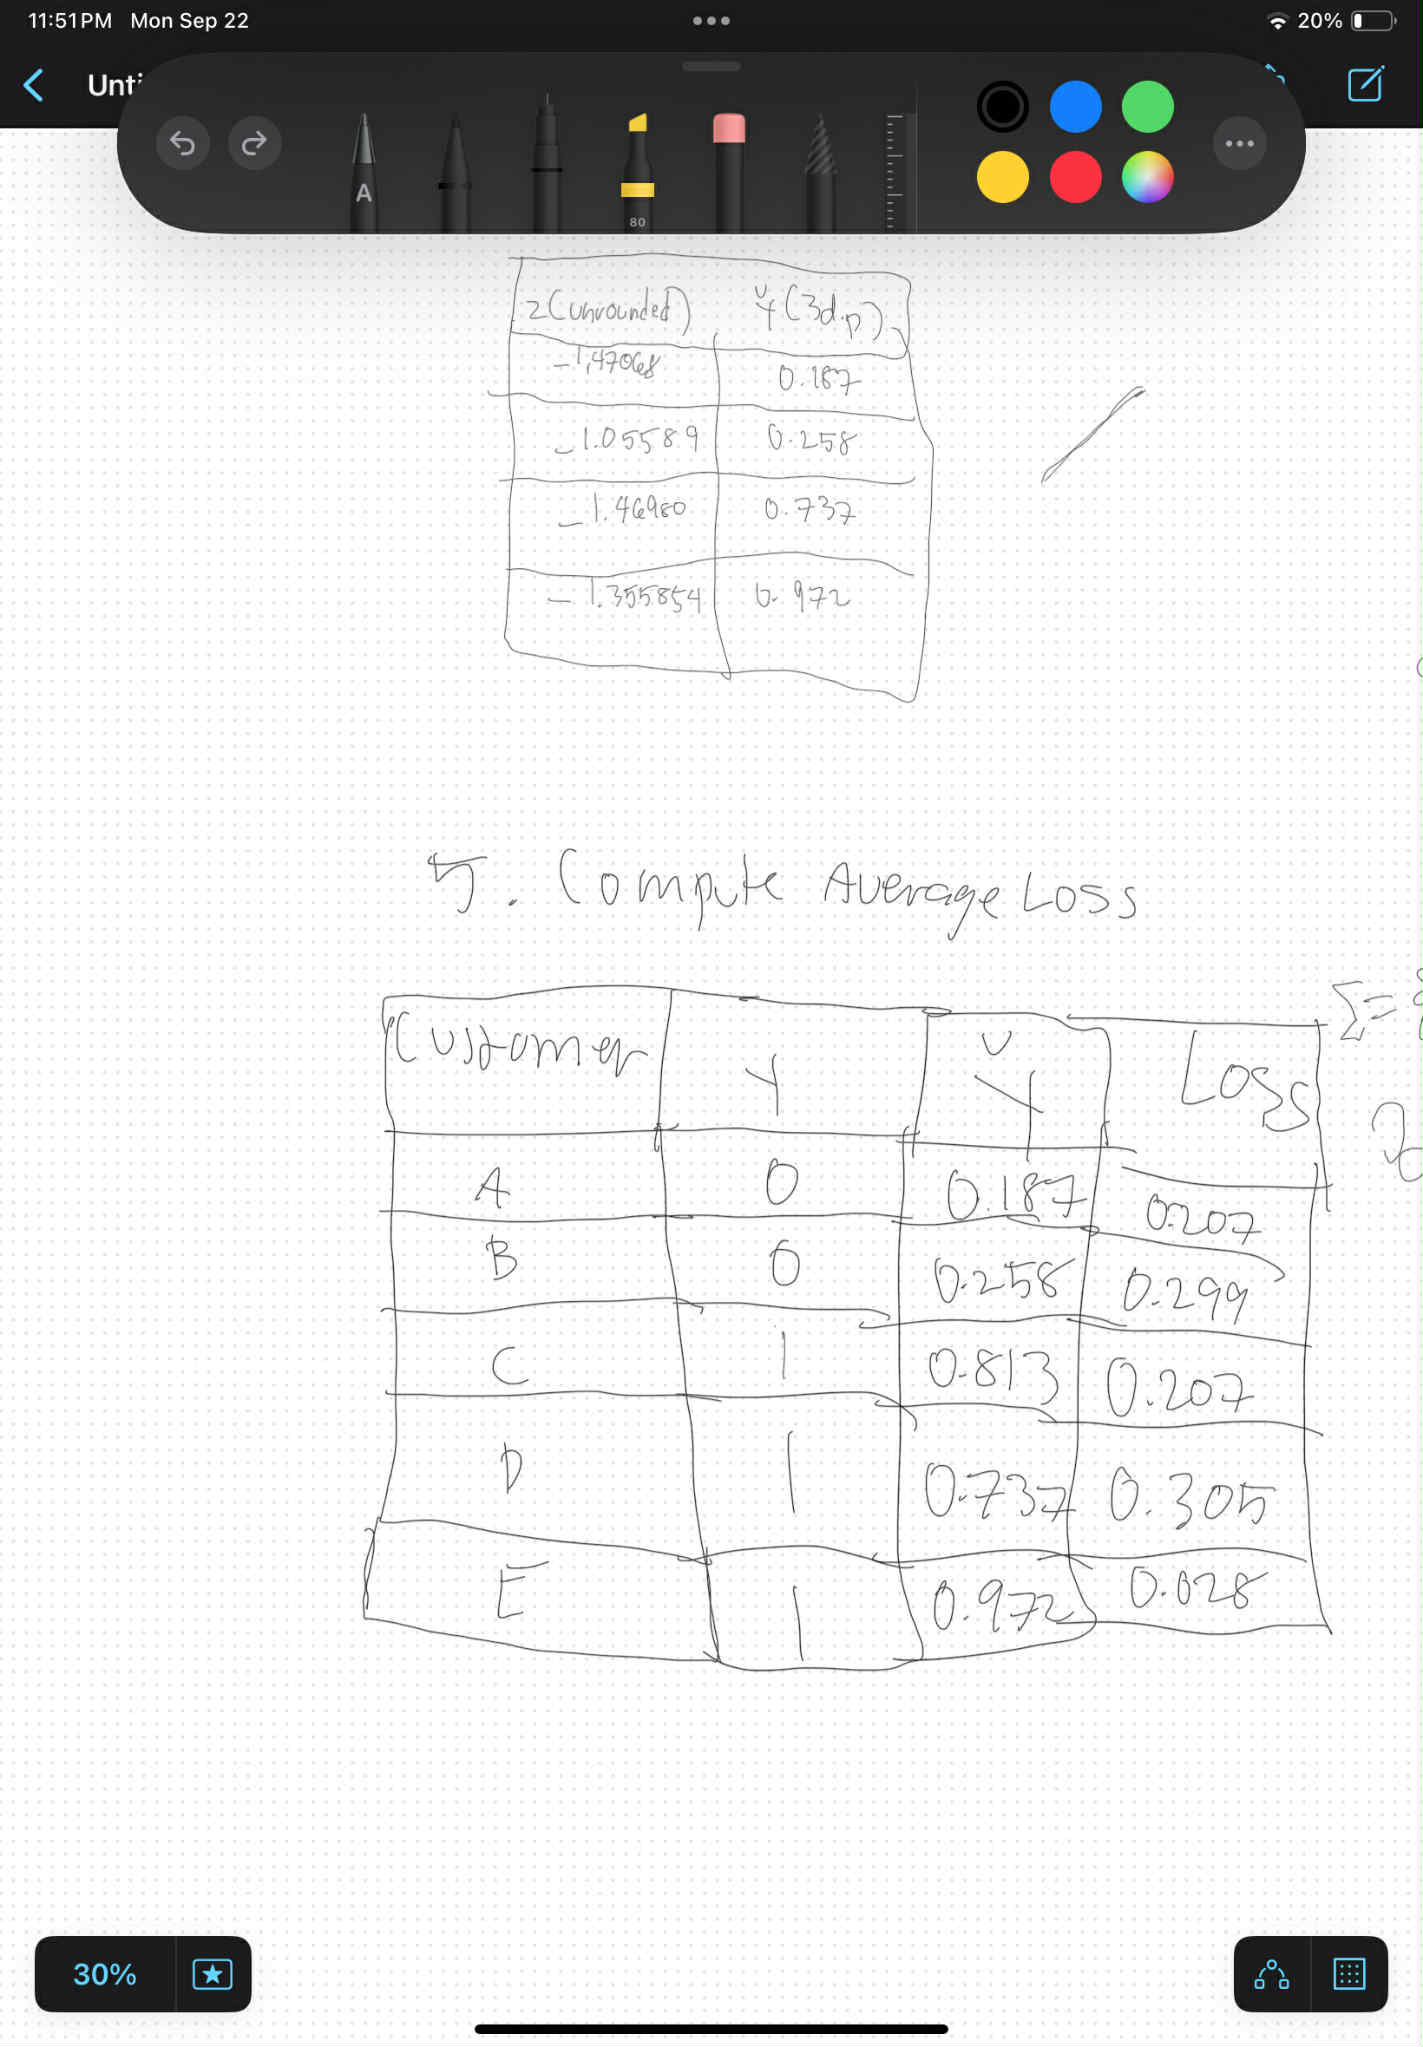 11:51 PM Mon Sep 22
20%
Unti
A
80
z(unrounded) Y(3d.p)
-1,47068 0.187
-1.05589 0.258
-1.46980 0.737
-1.355854 0.972
5. Compute Average Loss
Σ=
Customer Y Y Loss
A 0 0.187 0.207
B 0 0.258 0.299
C 1 0.813 0.207
D 1 0.737 0.305
E 1 0.972 0.028
30%